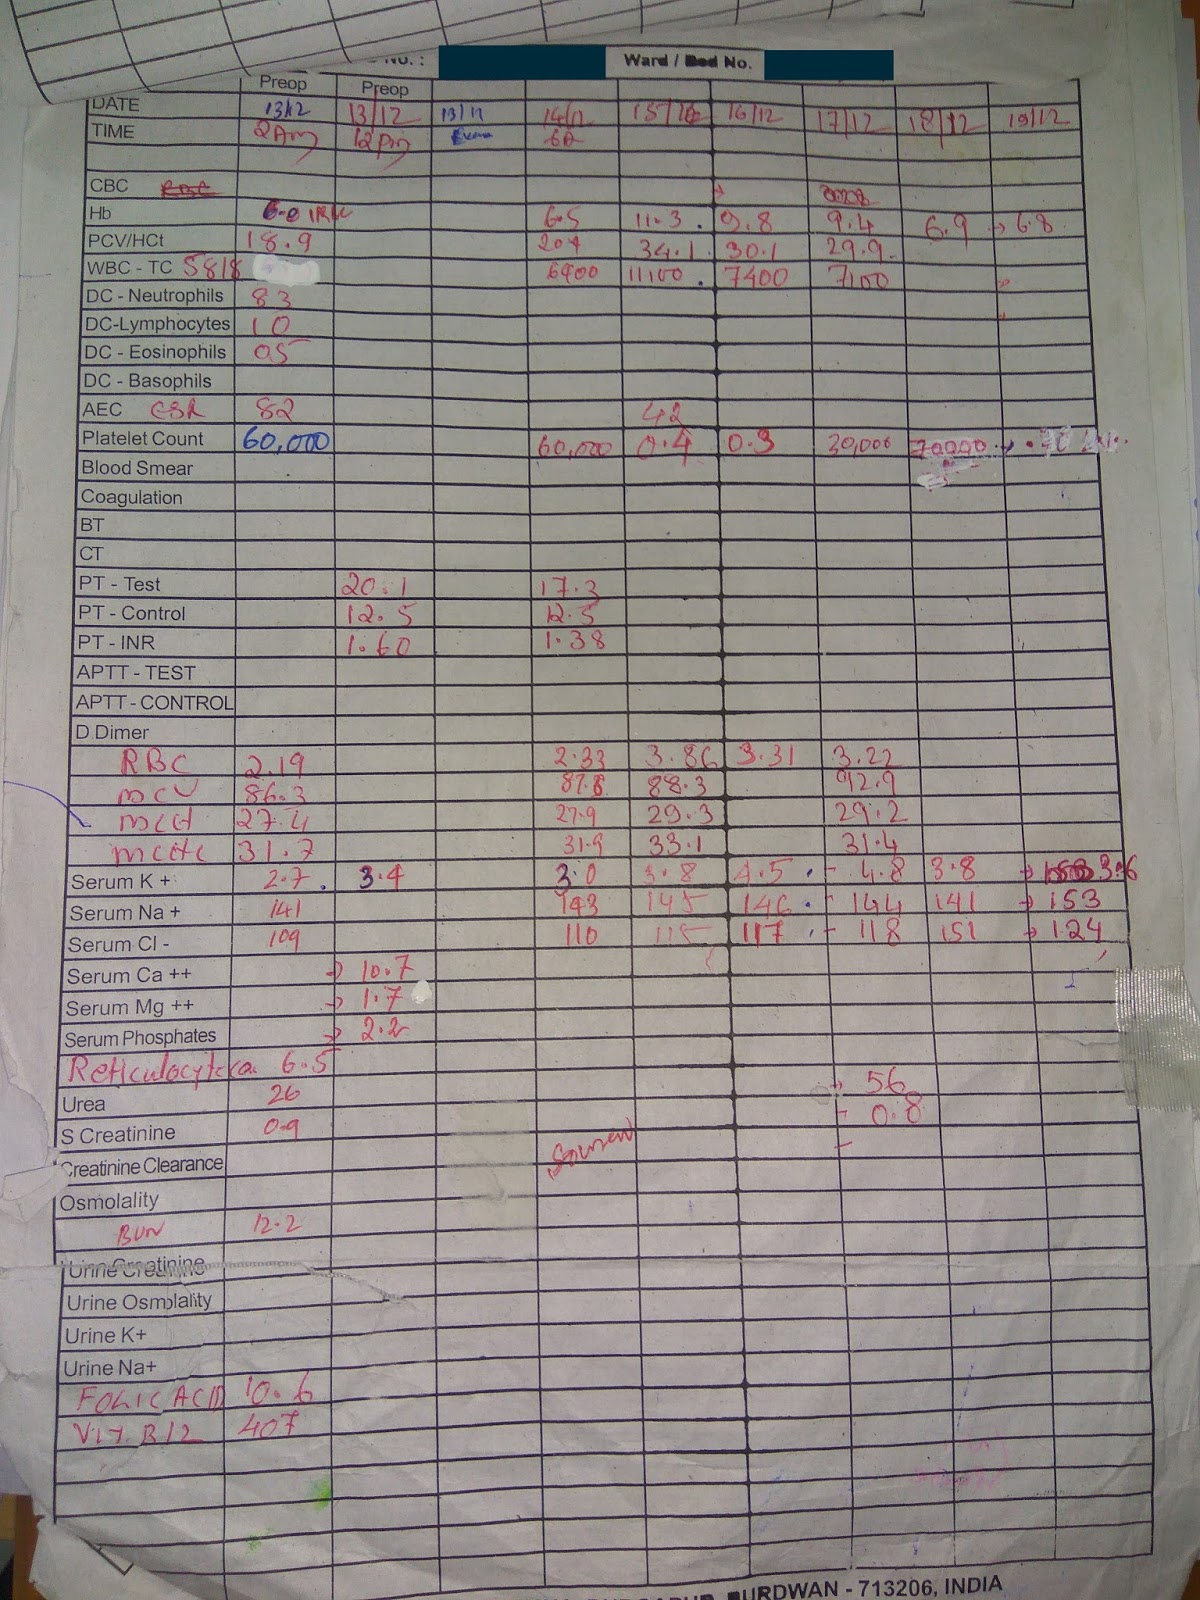 No. : Ward / Bed No.
Preop Preop
DATE 13/12 13/12 13/12 14/12 15/12 16/12 17/12 18/12 19/12
TIME 2Am 12pm
CBC
Hb 6.0 6.5 11.3 9.8 9.4 6.9 6.8
PCV/HCt 18.9 34.1 30.1 29.9
WBC - TC 5818 6900 11100 7400 7100
DC - Neutrophils 83
DC-Lymphocytes 10
DC - Eosinophils 05
DC - Basophils
AEC ESR 82 42
Platelet Count 60,000 60,000 0.4 0.3 30,000
Blood Smear
Coagulation
BT
CT
PT - Test 20.1 17.3
PT - Control 12.5 12.5
PT - INR 1.60 1.38
APTT - TEST
APTT - CONTROL
D Dimer
RBC 2.19 2.33 3.86 3.31 3.22
MCV 86.3 87.6 88.3 92.9
MCH 27.4 27.9 29.3 29.2
MCHC 31.7 31.9 33.1 31.4
Serum K + 2.7 3.4 3.0 3.8 4.5 4.8 3.8 3.6
Serum Na + 141 143 145 146 144 141 153
Serum Cl - 109 110 115 117 118 151 124
Serum Ca ++ 10.7
Serum Mg ++ 1.7
Serum Phosphates 2.2
Reticulocyte 6.5
Urea 26 56
S Creatinine 0.9 0.8
Creatinine Clearance
Osmolality
BUN 12.2
Urine Creatinine
Urine Osmolality
Urine K+
Urine Na+
FOLIC ACID 10.6
VIT B12 407
BURDWAN - 713206, INDIA